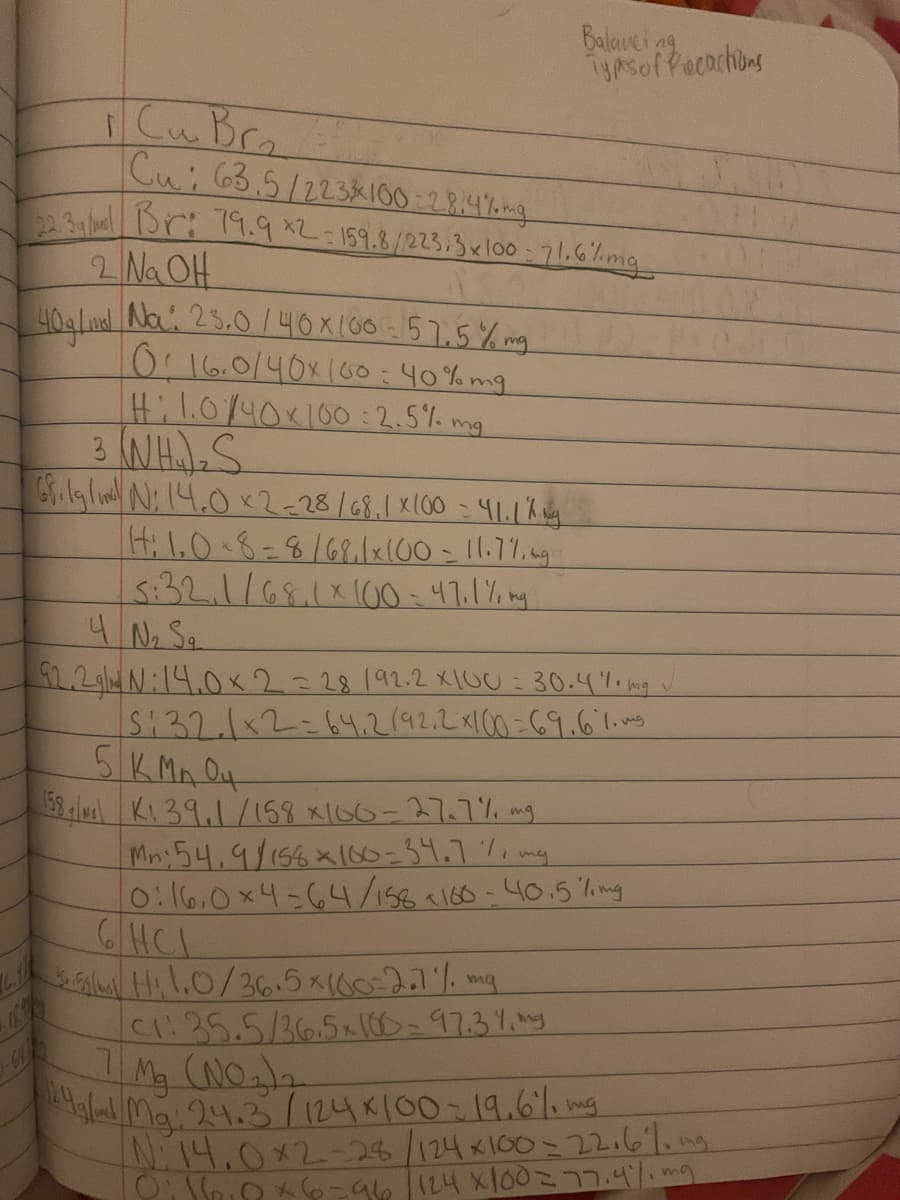 Balancing
Types of
1 CuBr2
Cu: 63.5/223x100=28.4% mg
22.3g/mol Br: 79.9 x2=159.8/223.3x100=71.6% mg
2 NaOH
40g/mol Na: 23.0/40x100=57.5% mg
O: 16.0/40x100=40% mg
H: 1.0/40x100=2.5% mg
3 (NH4)2S
68.1g/mol N: 14.0x2=28/68.1x100=41.1% mg
H: 1.0x8=8/68.1x100=11.7% mg
S: 32.1/68.1x100=47.1% mg
4 N2S2
92.2g/mol N: 14.0x2=28/92.2x100=30.4% mg
S: 32.1x2=64.2/92.2x100=69.6% mg
5 KMnO4
158g/mol K: 39.1/158x100=27.7% mg
Mn: 54.9/158x100=34.7% mg
O: 16.0x4=64/158x100=40.5% mg
6 HCl
36.5g/mol H: 1.0/36.5x100=2.7% mg
Cl: 35.5/36.5x100=97.3% mg
7 Mg(NO3)2
124g/mol Mg: 24.3/124x100=19.6% mg
N: 14.0x2=28/124x100=22.6% mg
O: 16.0x6=96/124x100=77.4% mg